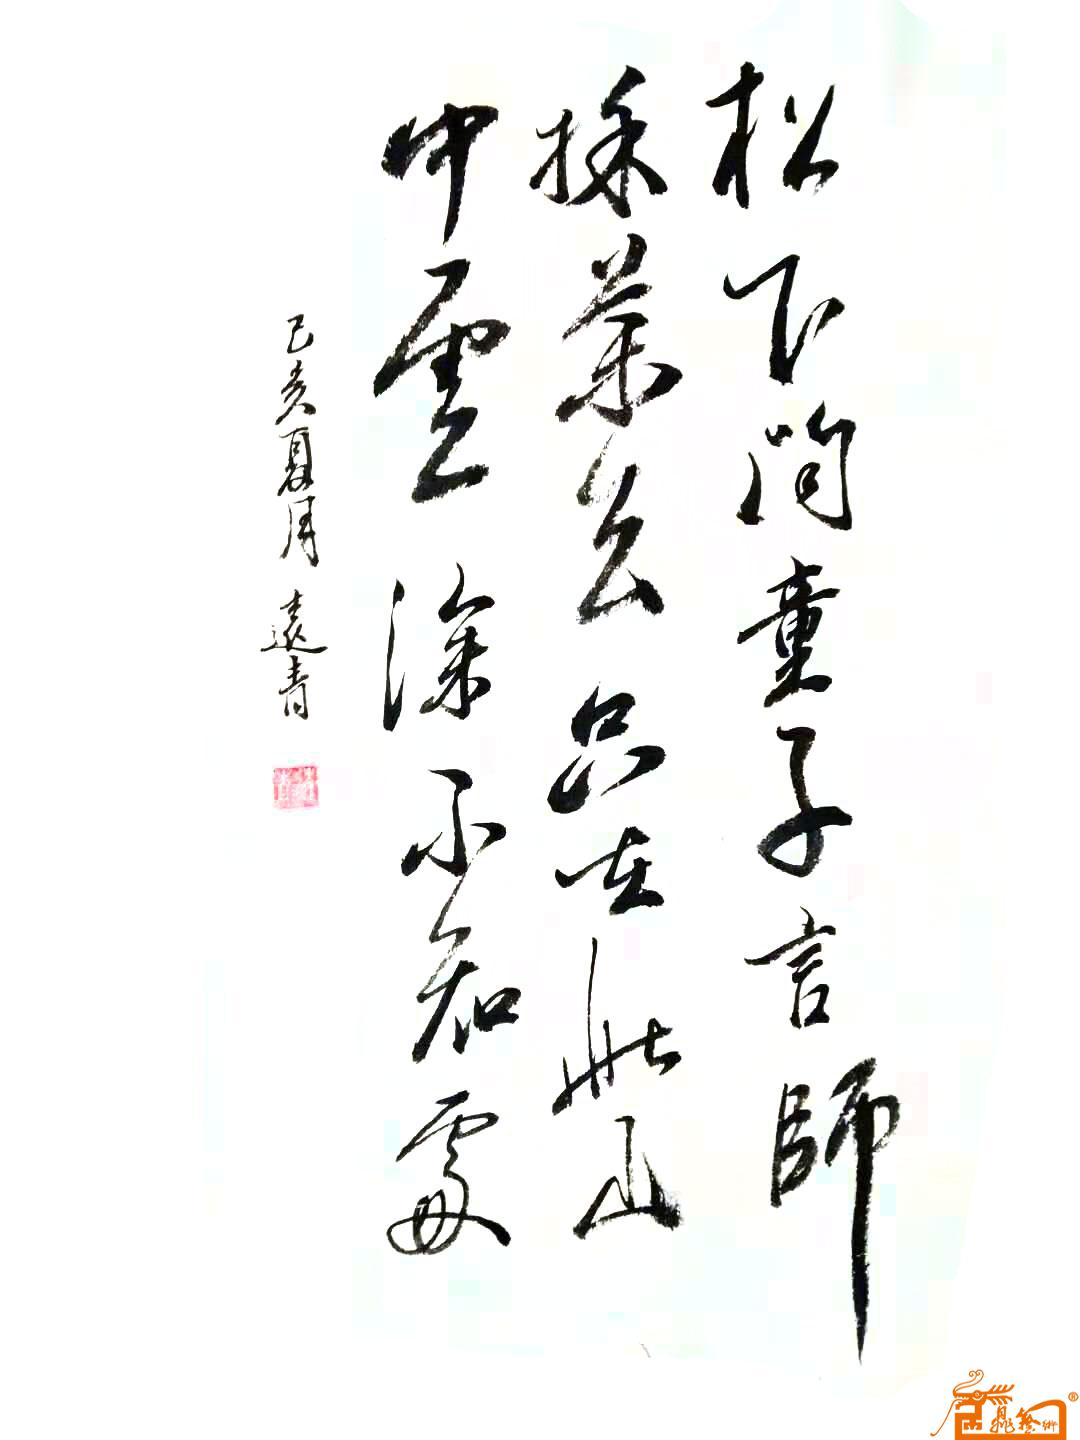 松下問童子言師
採藥去只在此山
中雲深不知處
己亥夏月遠青